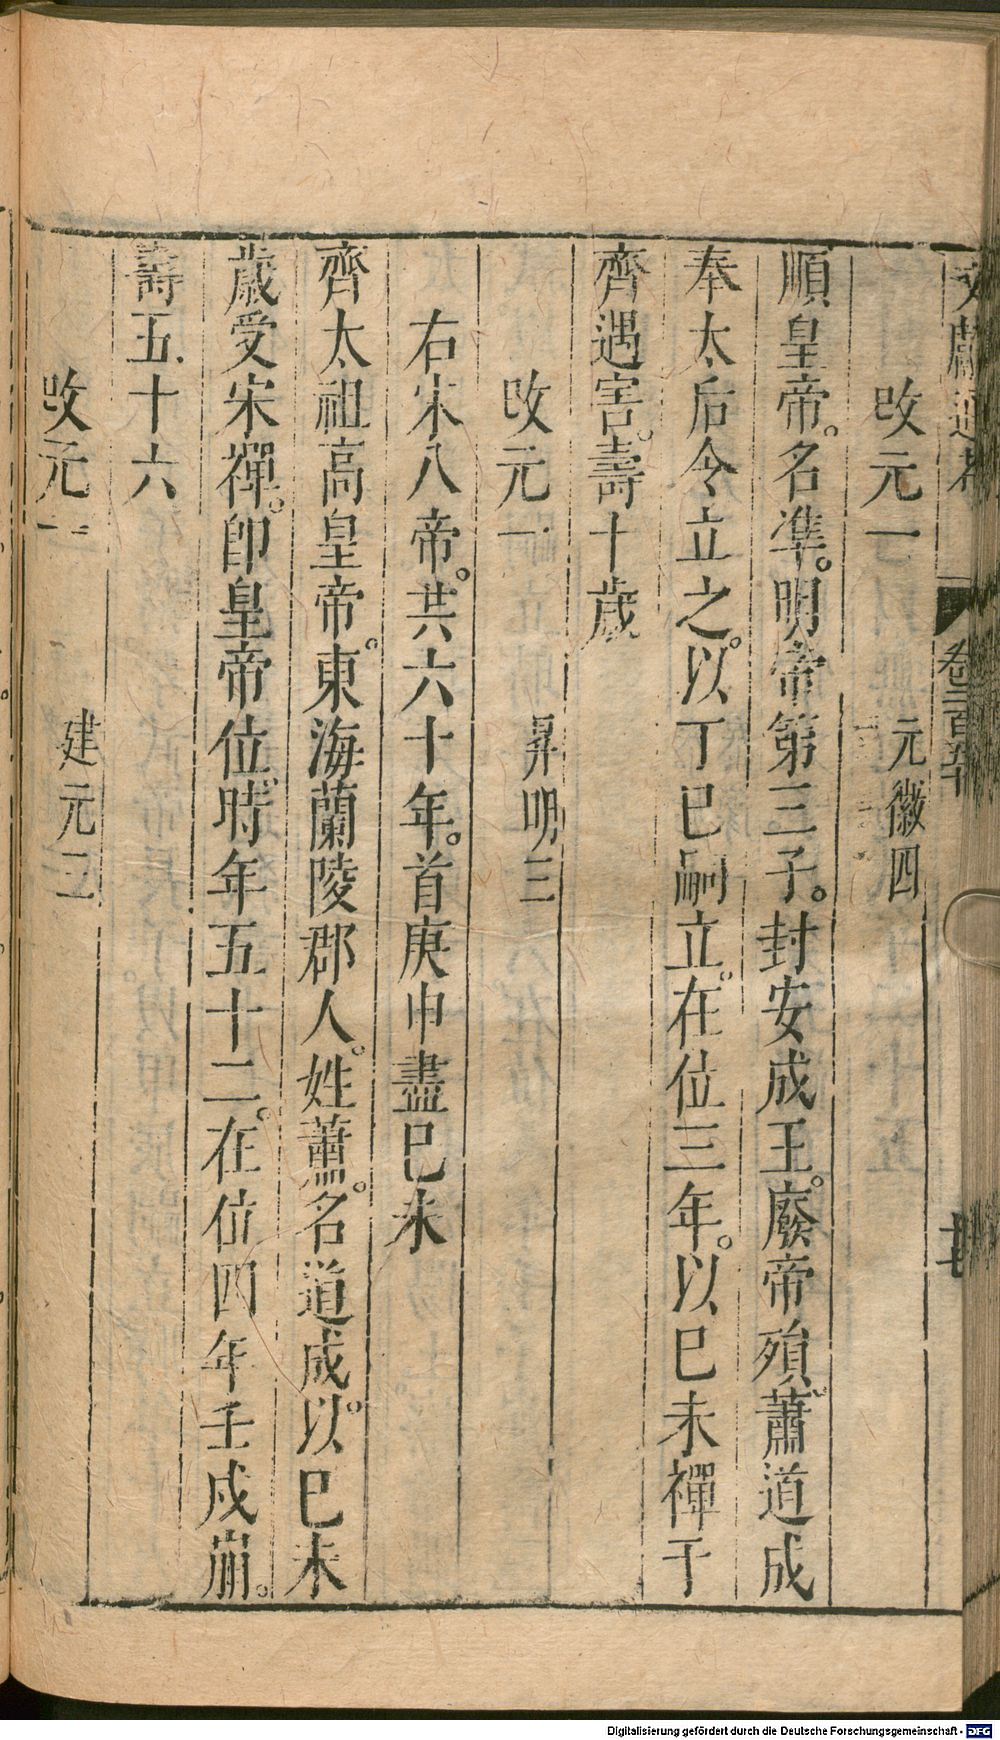 文獻通考 卷二百五十 十七
改元一 元徽四
順皇帝。名準。明帝第三子。封安成王。廢帝殞。蕭道成
奉太后令立之。以丁巳嗣立。在位三年。以巳未禪于
齊遇害。壽十歲
改元一 昇明三
右宋八帝。共六十年。首庚申盡巳未
齊太祖高皇帝。東海蘭陵郡人。姓蕭。名道成。以巳未
歲受宋禪。卽皇帝位。時年五十二。在位四年壬戌崩。
壽五十六
改元一 建元三
Digitalisierung gefördert durch die Deutsche Forschungsgemeinschaft - DFG